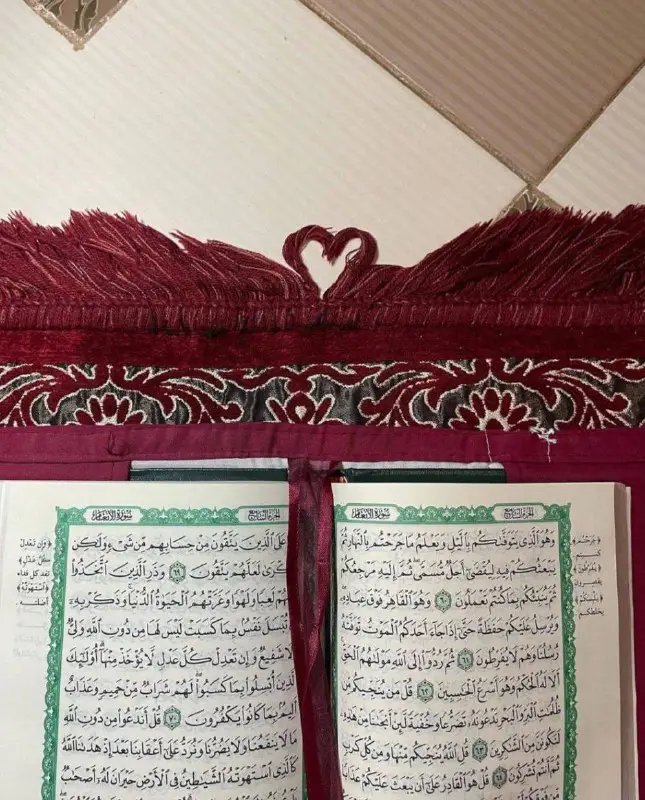 الجزء السابع سورة الأنعام
وَهُوَ الَّذِي يَتَوَفَّىٰكُم بِالَّيْلِ وَيَعْلَمُ مَا جَرَحْتُم بِالنَّهَارِ ثُمَّ
يَبْعَثُكُمْ فِيهِ لِيُقْضَىٰٓ أَجَلٌ مُّسَمًّى ثُمَّ إِلَيْهِ مَرْجِعُكُمْ
ثُمَّ يُنَبِّئُكُم بِمَا كُنتُمْ تَعْمَلُونَ ٦٠ وَهُوَ الْقَاهِرُ فَوْقَ عِبَادِهِۦ
وَيُرْسِلُ عَلَيْكُمْ حَفَظَةً حَتَّىٰٓ إِذَا جَآءَ أَحَدَكُمُ الْمَوْتُ تَوَفَّتْهُ
رُسُلُنَا وَهُمْ لَا يُفَرِّطُونَ ٦١ ثُمَّ رُدُّوٓا إِلَى اللَّهِ مَوْلَىٰهُمُ الْحَقِّ
أَلَا لَهُ الْحُكْمُ وَهُوَ أَسْرَعُ الْحَٰسِبِينَ ٦٢ قُلْ مَن يُنَجِّيكُم مِّن
ظُلُمَٰتِ الْبَرِّ وَالْبَحْرِ تَدْعُونَهُۥ تَضَرُّعًا وَخُفْيَةً لَّئِنْ أَنجَىٰنَا مِنْ هَٰذِهِۦ
لَنَكُونَنَّ مِنَ الشَّٰكِرِينَ ٦٣ قُلِ اللَّهُ يُنَجِّيكُم مِّنْهَا وَمِن كُلِّ كَرْبٍ
ثُمَّ أَنتُمْ تُشْرِكُونَ ٦٤ قُلْ هُوَ الْقَادِرُ عَلَىٰٓ أَن يَبْعَثَ عَلَيْكُمْ عَذَابًا
﴿جَرَحْتُم﴾
كسبتم
﴿يُفَرِّطُونَ﴾
يقصرون
﴿يَلْبِسَكُمْ﴾
يخلطكم
الجزء السابع سورة الأنعام
عَلَى الَّذِينَ يَتَّقُونَ مِنْ حِسَابِهِم مِّن شَىْءٍ وَلَٰكِن
كْرَىٰ لَعَلَّهُمْ يَتَّقُونَ ٦٩ وَذَرِ الَّذِينَ اتَّخَذُوا
هُمْ لَعِبًا وَلَهْوًا وَغَرَّتْهُمُ الْحَيَوٰةُ الدُّنْيَا وَذَكِّرْ بِهِۦٓ
تُبْسَلَ نَفْسٌۢ بِمَا كَسَبَتْ لَيْسَ لَهَا مِن دُونِ اللَّهِ وَلِىٌّ
لَا شَفِيعٌ وَإِن تَعْدِلْ كُلَّ عَدْلٍ لَّا يُؤْخَذْ مِنْهَآ أُولَٰٓئِكَ
الَّذِينَ أُبْسِلُوا بِمَا كَسَبُوا لَهُمْ شَرَابٌ مِّنْ حَمِيمٍ وَعَذَابٌ
أَلِيمٌۢ بِمَا كَانُوا يَكْفُرُونَ ٧٠ قُلْ أَنَدْعُوا مِن دُونِ اللَّهِ
مَا لَا يَنفَعُنَا وَلَا يَضُرُّنَا وَنُرَدُّ عَلَىٰٓ أَعْقَابِنَا بَعْدَ إِذْ هَدَىٰنَا اللَّهُ
كَالَّذِى اسْتَهْوَتْهُ الشَّيَٰطِينُ فِى الْأَرْضِ حَيْرَانَ لَهُۥٓ أَصْحَٰبٌ
﴿وَإِن تَعْدِلْ
كُلَّ عَدْلٍ﴾
تفد كل فداء
﴿اسْتَهْوَتْهُ﴾
أضلته